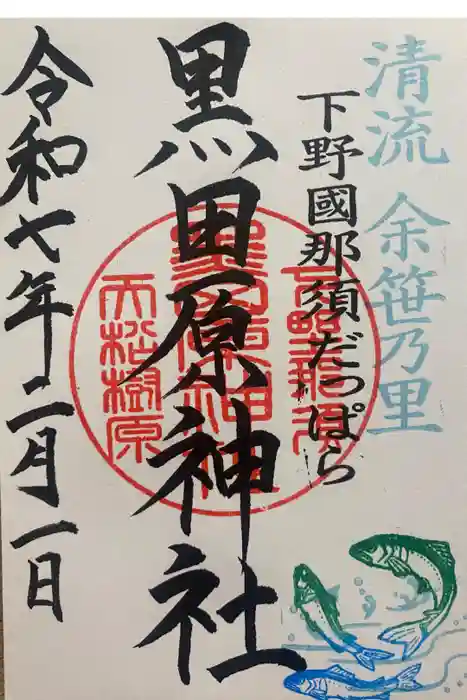 清流 余笹乃里
下野國那須だっぱら
黒田原神社
令和七年二月一日